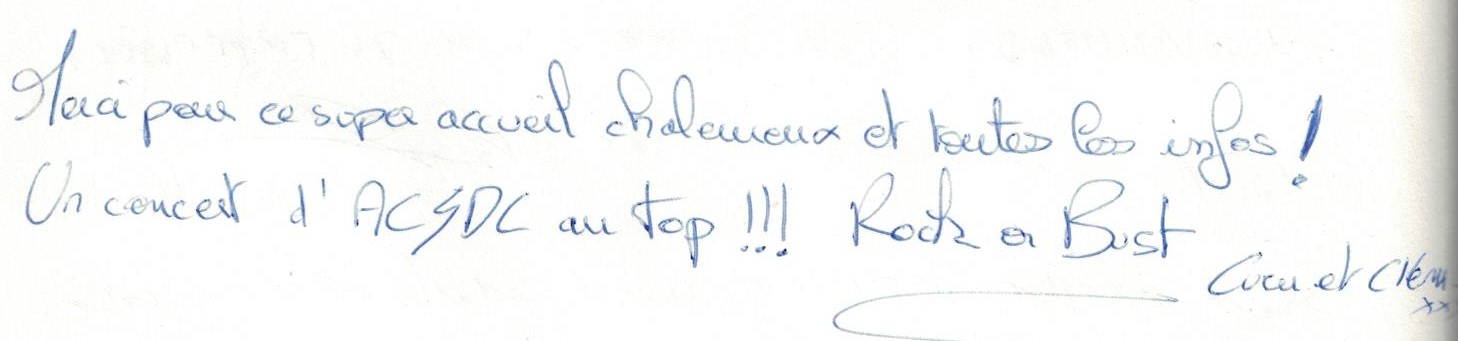 Merci pour ce super accueil chaleureux et toutes les infos !
Un concert d'AC⚡DC au top !!! Rock or Bust
et Clém
xx